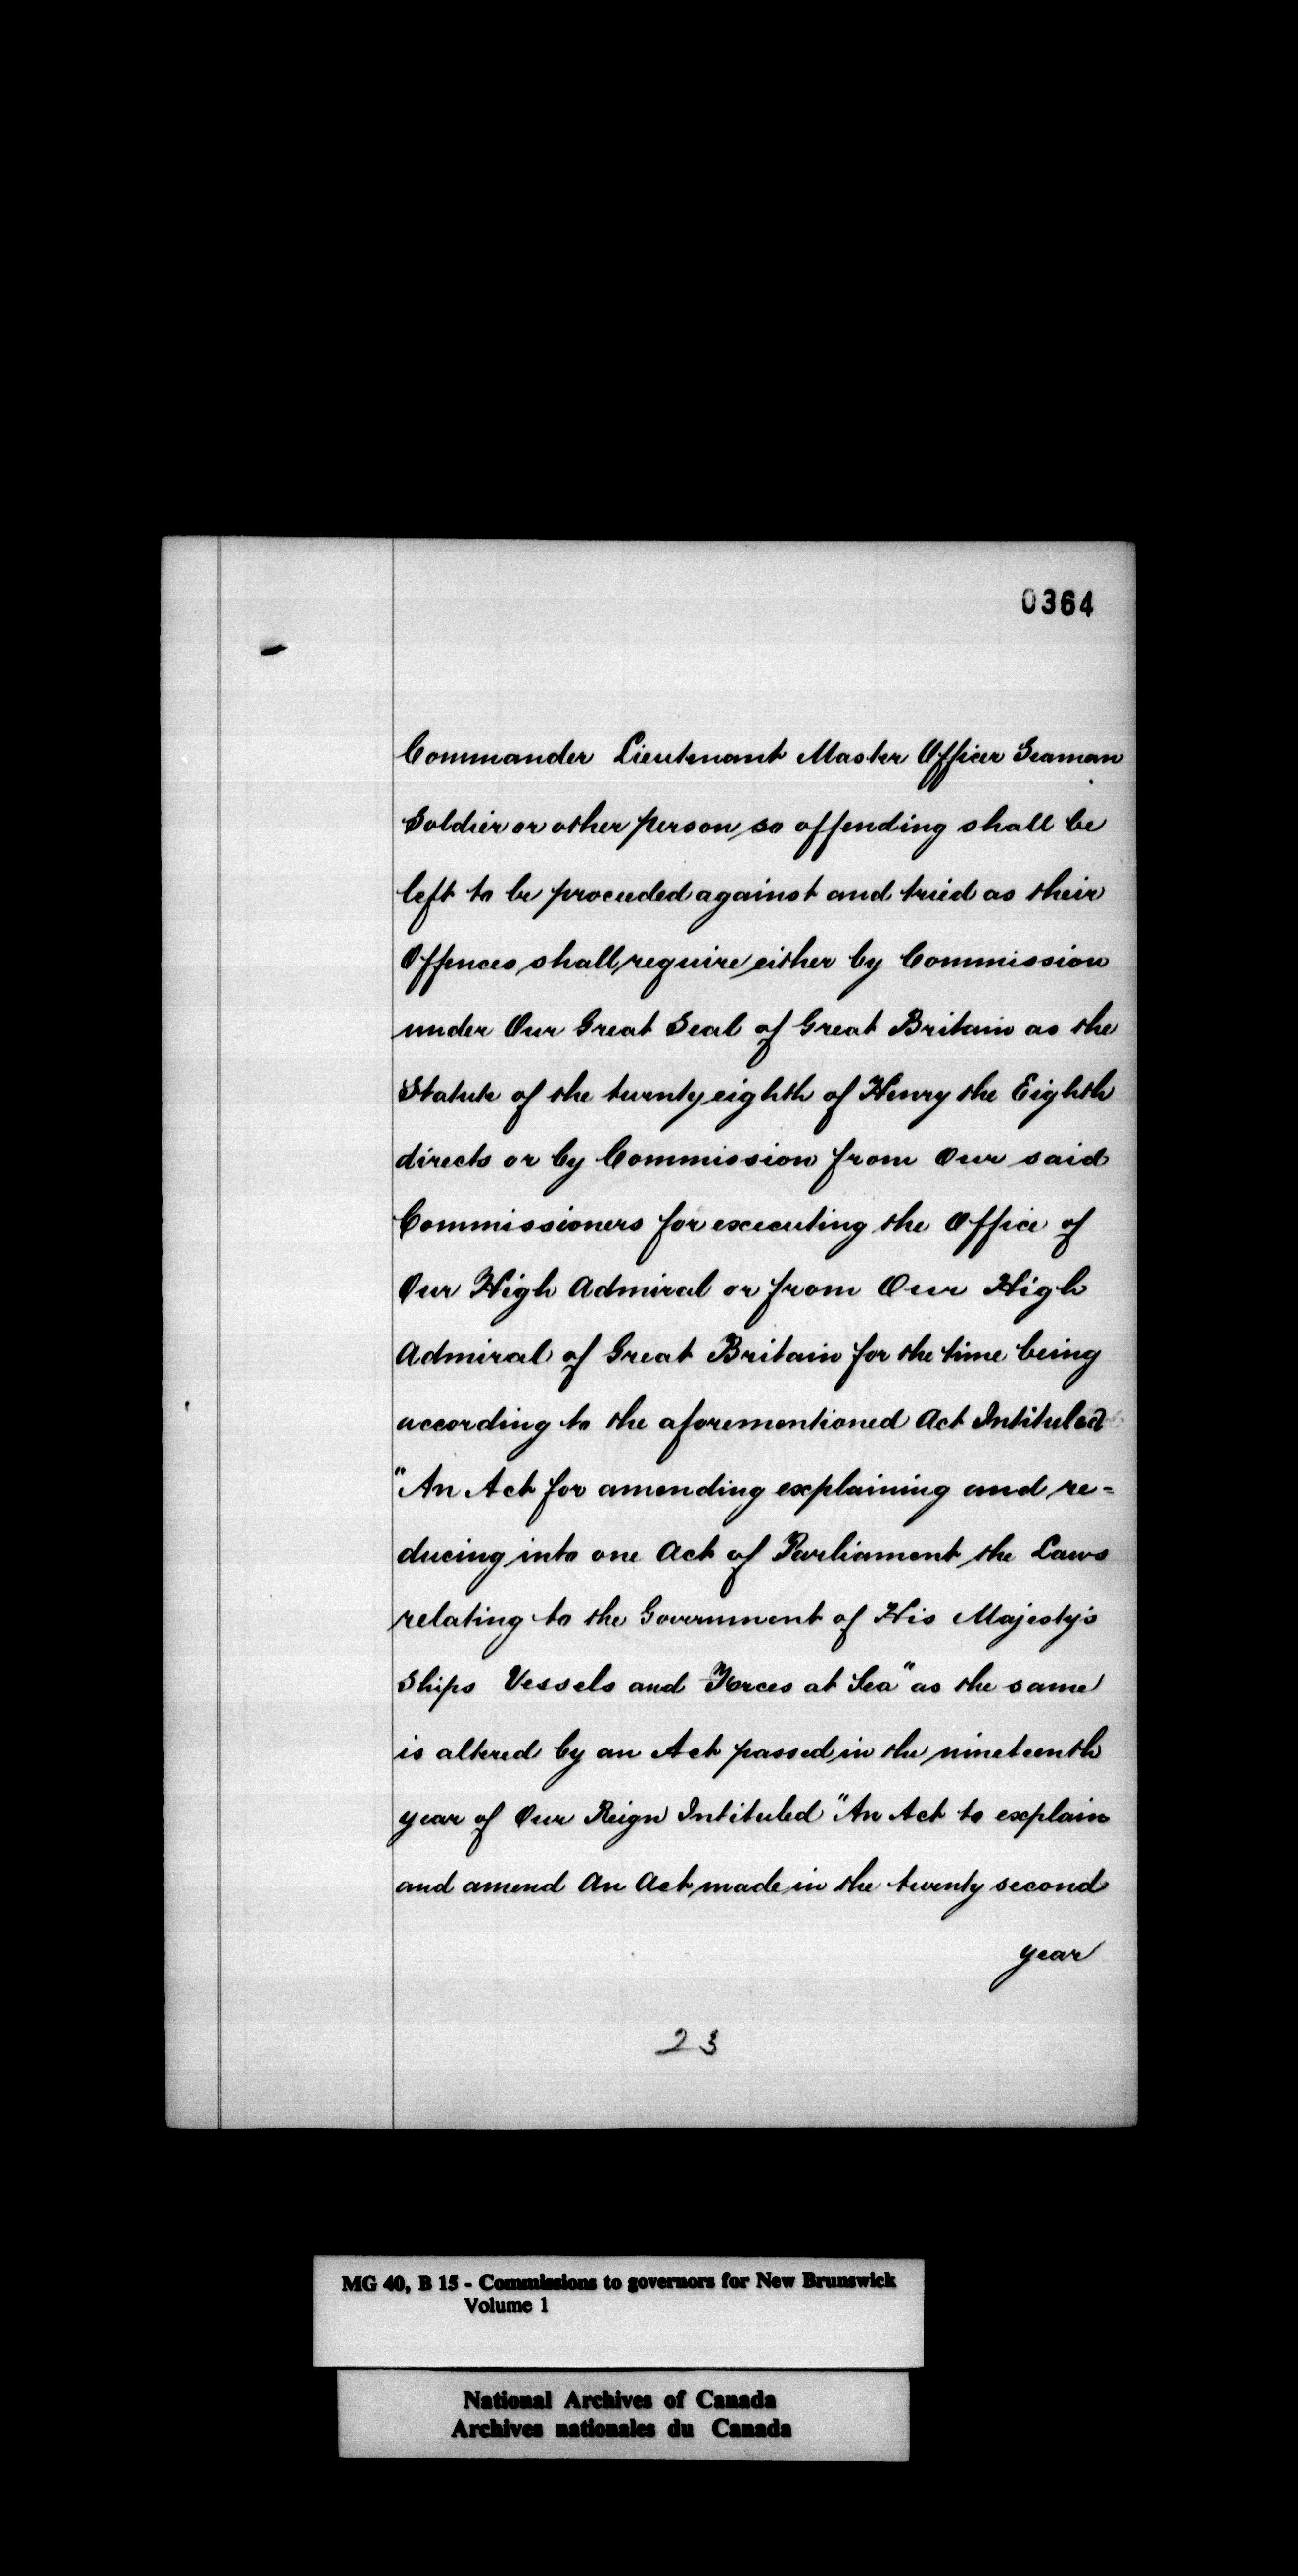 0364
Commander Lieutenant Master Officer Seaman
Soldier or other person so offending shall be
left to be proceeded against and tried as their
Offences shall require either by Commission
under Our Great Seal of Great Britain as the
Statute of the twenty eighth of Henry the Eighth
directs or by Commission from Our said
Commissioners for executing the Office of
Our High Admiral or from Our High
Admiral of Great Britain for the time being
according to the aforementioned Act Intituled
"An Act for amending explaining and re=
ducing into one Act of Parliament the Laws
relating to the Government of His Majesty's
Ships Vessels and Forces at Sea" as the same
is altered by an Act passed in the nineteenth
year of Our Reign Intituled "An Act to explain
and amend An Act made in the twenty second
year
23
MG 40, B 15 - Commissions to governors for New Brunswick
Volume 1
National Archives of Canada
Archives nationales du Canada